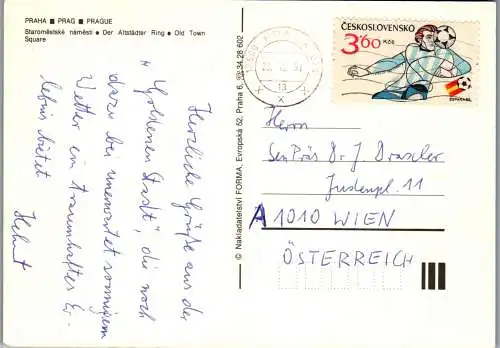 PRAHA ■ PRAG ■ PRAGUE
Staroměstské náměstí ■ Der Altstädter Ring ■ Old Town
Square
Herzliche Grüße aus der
„Goldenen Stadt", die noch
dazu bei unerwartet sonnigem
Wetter ein traumhaftes Er-
lebnis bietet
Helmut
© Nakladatelství FORMA, Evropská 62, Praha 6, 34 28 602
ČESKOSLOVENSKO
3,60 Kčs
ESPAÑA 82
PRAHA
13
Herrn
SenPräs D. J. Draxler
Judenpl. 11
A 1010 WIEN
ÖSTERREICH